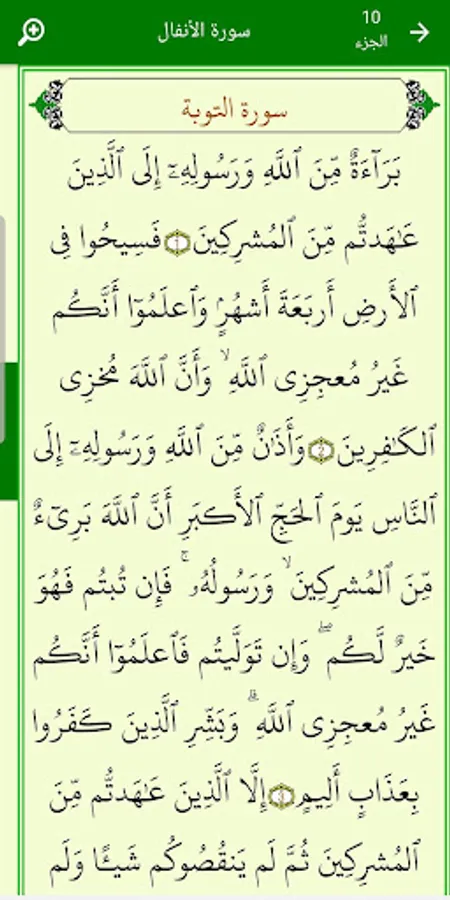 10
الجزء
سورة الأنفال
سورة التوبة
بَرَآءَةٌ مِّنَ ٱللَّهِ وَرَسُولِهِۦٓ إِلَى ٱلَّذِينَ
عَـٰهَدتُّم مِّنَ ٱلْمُشْرِكِينَ ١ فَسِيحُوا فِى
ٱلْأَرْضِ أَرْبَعَةَ أَشْهُرٍ وَٱعْلَمُوٓا أَنَّكُمْ
غَيْرُ مُعْجِزِى ٱللَّهِ ۙ وَأَنَّ ٱللَّهَ مُخْزِى
ٱلْكَـٰفِرِينَ ٢ وَأَذَٰنٌ مِّنَ ٱللَّهِ وَرَسُولِهِۦٓ إِلَى
ٱلنَّاسِ يَوْمَ ٱلْحَجِّ ٱلْأَكْبَرِ أَنَّ ٱللَّهَ بَرِىٓءٌ
مِّنَ ٱلْمُشْرِكِينَ ۙ وَرَسُولُهُۥ ۚ فَإِن تُبْتُمْ فَهُوَ
خَيْرٌ لَّكُمْ ۖ وَإِن تَوَلَّيْتُمْ فَٱعْلَمُوٓا أَنَّكُمْ
غَيْرُ مُعْجِزِى ٱللَّهِ ۗ وَبَشِّرِ ٱلَّذِينَ كَفَرُوا
بِعَذَابٍ أَلِيمٍ ٣ إِلَّا ٱلَّذِينَ عَـٰهَدتُّم مِّنَ
ٱلْمُشْرِكِينَ ثُمَّ لَمْ يَنقُصُوكُمْ شَيْـًٔا وَلَمْ